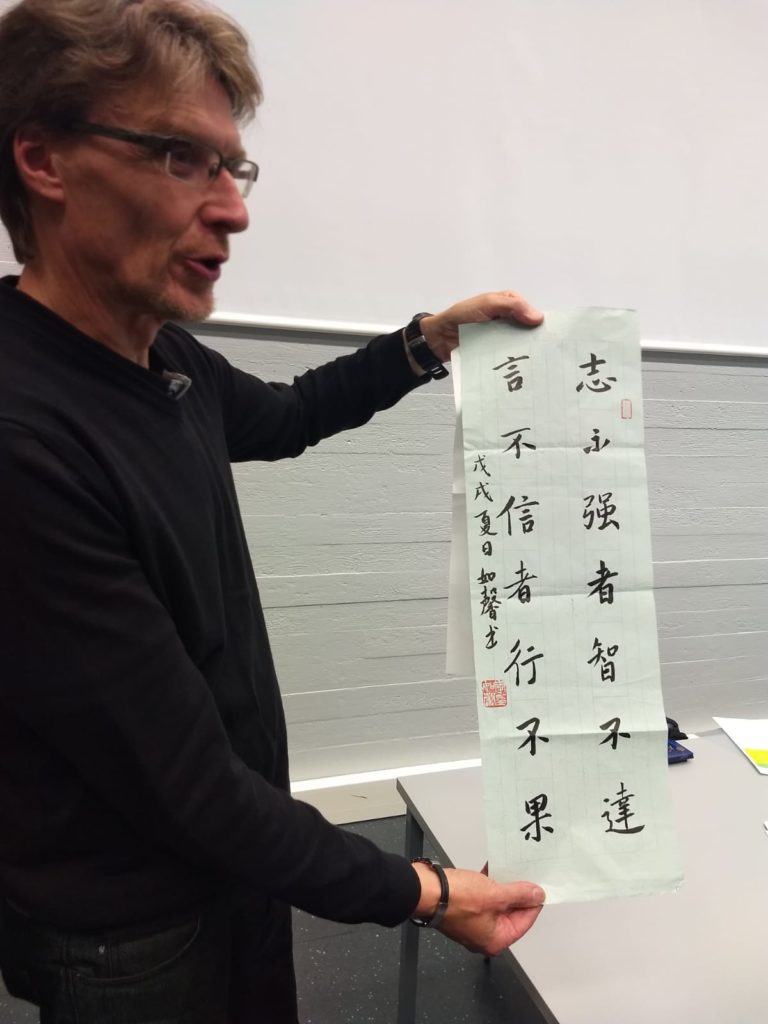 志不强者智不達
言不信者行不果
戊戌夏日如馨书